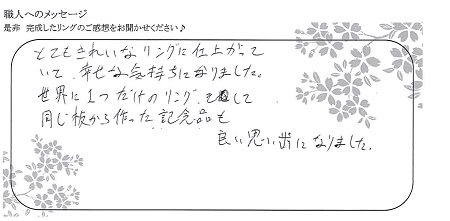 職人へのメッセージ
是非 完成したリングのご感想をお聞かせください♪
とてもきれいなリングに仕上がって
いて、幸せな気持ちになりました。
世界に1つだけのリング、そして
同じ板から作った記念品も
良い思い出になりました。